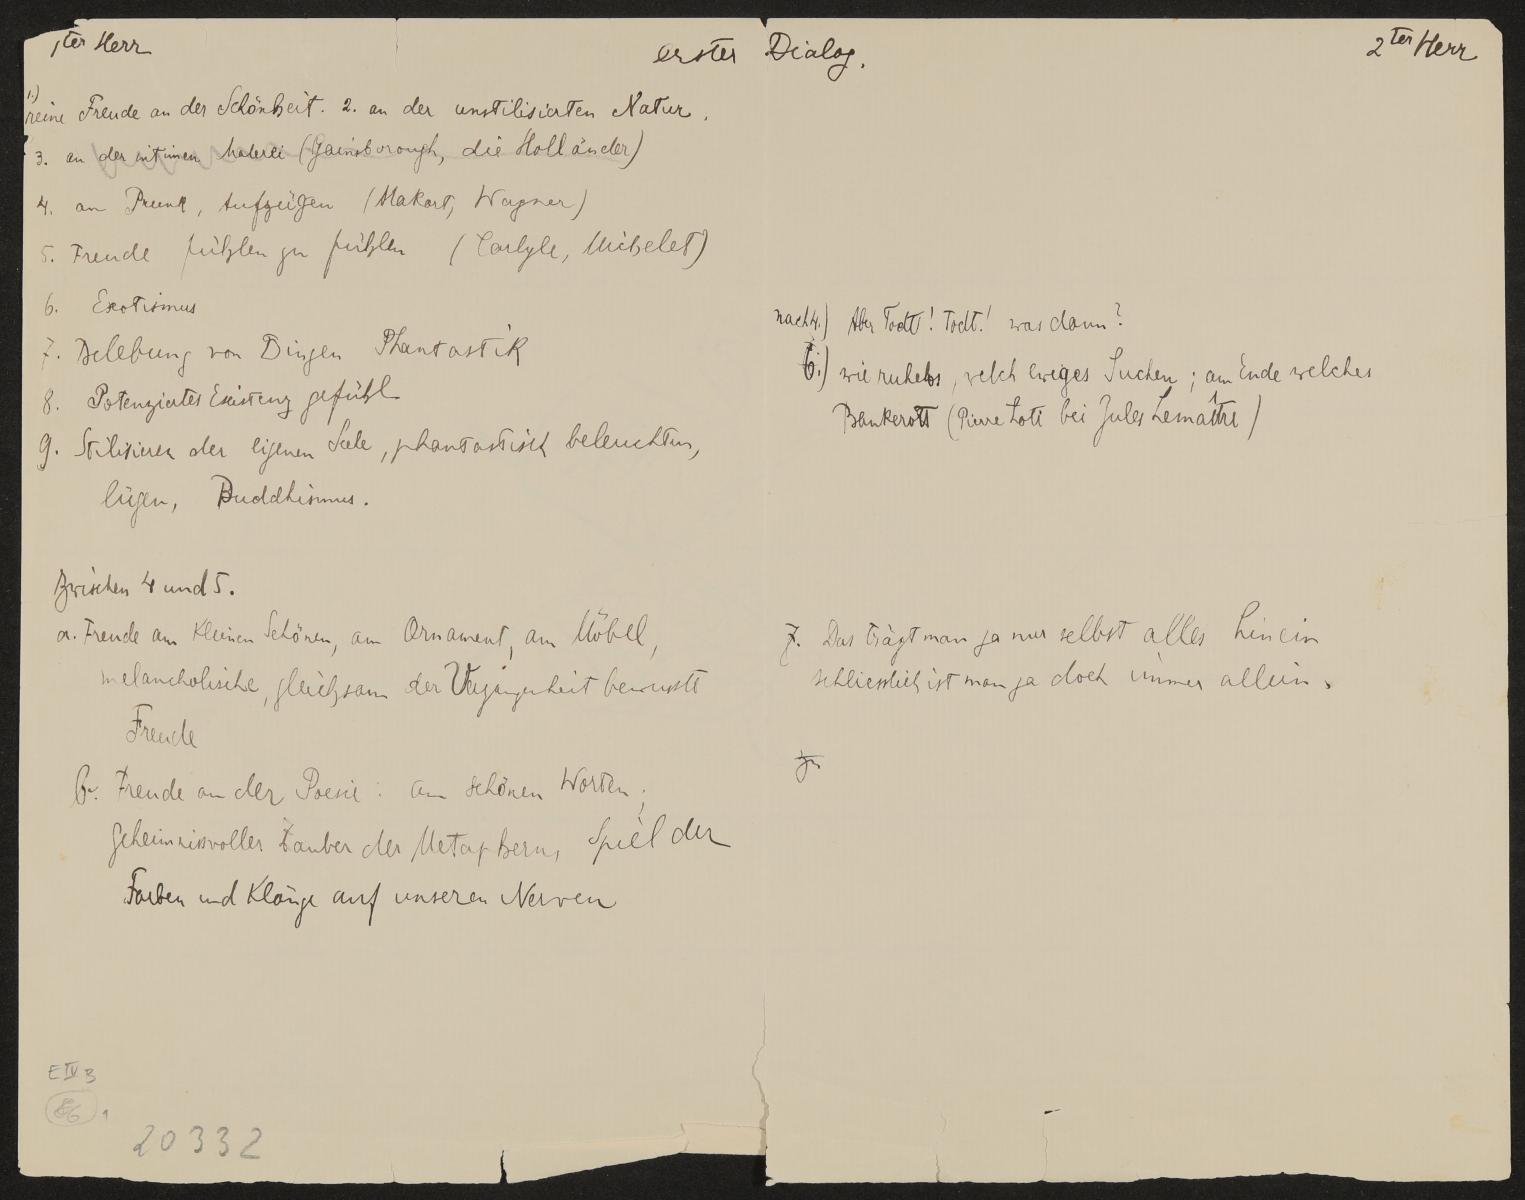 1ter Herr
erster Dialog.
2ter Herr
1.)
reine Freude an der Schönheit. 2. an der unstilisierten Natur.
3. an der intimen Malerei (Gainsborough, die Holländer)
4. am Prunk, Aufzügen (Makart, Wagner)
5. Freude fühlen zu fühlen (Carlyle, Michelet)
6. Exotismus
7. Belebung von Dingen Phantastik
8. Potenziertes Existenzgefühl
9. Stilisieren der eigenen Seele, phantastisch beleuchten,
lügen, Buddhismus.
Zwischen 4 und 5.
a. Freude am kleinen Schönen, am Ornament, am Möbel,
melancholische, gleichsam der Vergangenheit bewusste
Freude
b. Freude an der Poesie: an schönen Worten;
geheimnissvoller Zauber der Metaphern, Spiel der
Farben und Klänge auf unseren Nerven
nach 4.) Aber Todt! Todt! was dann?
6.) wie ruhelos, welch ewiges Suchen; am Ende welches
Bankerott (Pierre Loti bei Jules Lemaître)
7. Das trägt man ja nur selbst alles hinein
schliesslich ist man ja doch immer allein.
zu
E IV B
86 1
20332